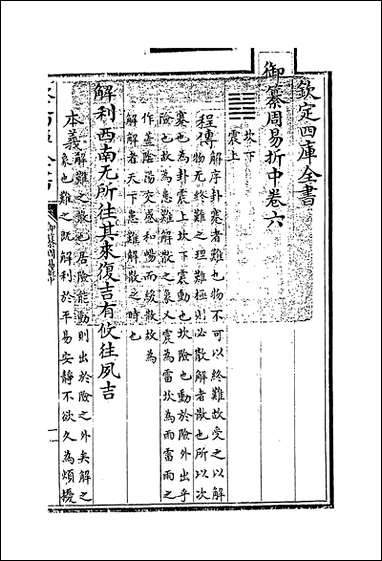 欽定四庫全書
御纂周易折中卷六
坎下
震上
程傳 解序卦蹇者難也物不可以終難故受之以解
物无終難之理難極則必散解者散也所以次
蹇也為卦震上坎下震動也坎險也動於險外出乎
險也故為患難解散之象又震為雷坎為雨雷雨之
作蓋陰陽交感和暢而緩散故為
解解者天下患難解散之時也
解利西南无所往其來復吉有攸往夙吉
本義 解難之散也居險能動則出於險之外矣解之
象也難之既解利於平易安靜不欲久為煩擾